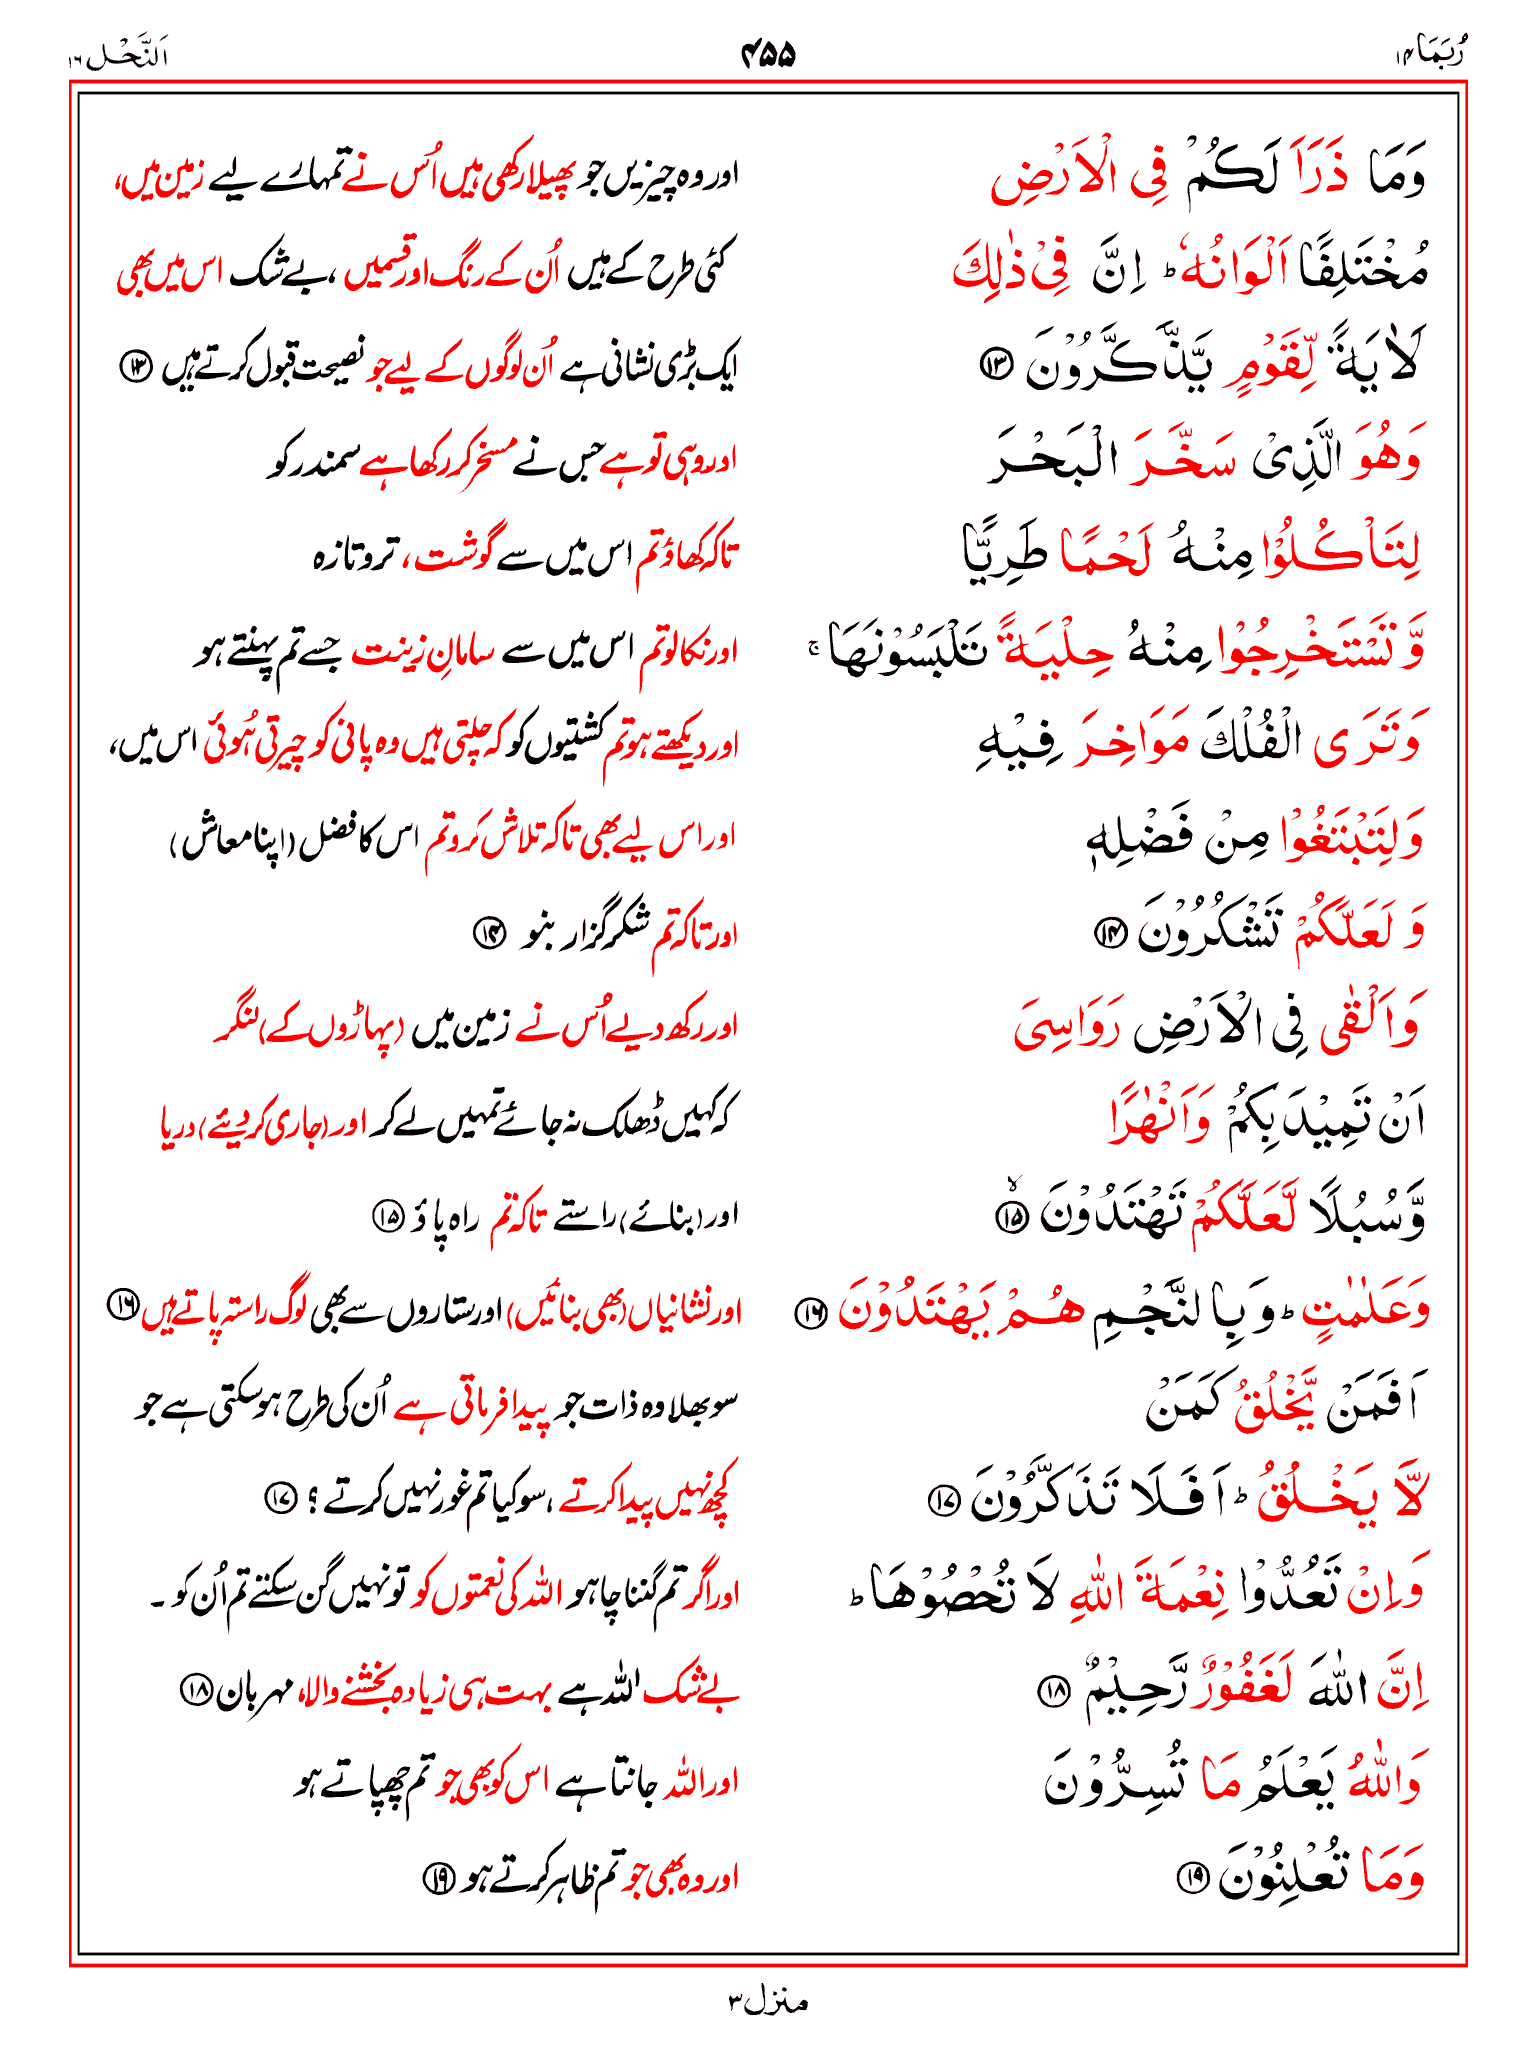 رُبَمَا ۱۴
۴۵۵
اَلنَّحْل ۱۶
وَمَا ذَرَاَ لَكُمْ فِى الْاَرْضِ
اور وہ چیزیں جو پھیلا رکھی ہیں اُس نے تمہارے لیے زمین میں،
مُخْتَلِفًا اَلْوَانُهٗ ؕ اِنَّ فِىْ ذٰلِكَ
کئی طرح کے ہیں اُن کے رنگ اور قسمیں، بے شک اس میں بھی
لَاٰيَةً لِّقَوْمٍ يَّذَّكَّرُوْنَ ۱۳
ایک بڑی نشانی ہے اُن لوگوں کے لیے جو نصیحت قبول کرتے ہیں ۱۳
وَهُوَ الَّذِىْ سَخَّرَ الْبَحْرَ
اور وہی تو ہے جس نے مسخر کر رکھا ہے سمندر کو
لِتَاْكُلُوْا مِنْهُ لَحْمًا طَرِيًّا
تاکہ کھاؤ تم اس میں سے گوشت، تر و تازہ
وَّ تَسْتَخْرِجُوْا مِنْهُ حِلْيَةً تَلْبَسُوْنَهَا ۚ
اور نکالو تم اس میں سے سامانِ زینت جسے تم پہنتے ہو
وَتَرَى الْفُلْكَ مَوَاخِرَ فِيْهِ
اور دیکھتے ہو تم کشتیوں کو کہ چلتی ہیں وہ پانی کو چیرتی ہُوئی اس میں،
وَلِتَبْتَغُوْا مِنْ فَضْلِهٖ
اور اس لیے بھی تاکہ تلاش کرو تم اس کا فضل (اپنا معاش)
وَ لَعَلَّكُمْ تَشْكُرُوْنَ ۱۴
اور تاکہ تم شکر گزار بنو ۱۴
وَاَلْقٰى فِى الْاَرْضِ رَوَاسِىَ
اور رکھ دیے اُس نے زمین میں (پہاڑوں کے) لنگر
اَنْ تَمِيْدَ بِكُمْ وَاَنْهٰرًا
کہ کہیں ڈھلک نہ جائے تمہیں لے کر اور (جاری کر دیئے) دریا
وَّسُبُلًا لَّعَلَّكُمْ تَهْتَدُوْنَ ۙ ۱۵
اور (بنائے) راستے تاکہ تم راہ پاؤ ۱۵
وَعَلٰمٰتٍ ؕ وَبِالنَّجْمِ هُمْ يَهْتَدُوْنَ ۱۶
اور نشانیاں (بھی بنائیں) اور ستاروں سے بھی لوگ راستہ پاتے ہیں ۱۶
اَفَمَنْ يَّخْلُقُ كَمَنْ
سو بھلا وہ ذات جو پیدا فرماتی ہے اُن کی طرح ہو سکتی ہے جو
لَّا يَخْلُقُ ؕ اَفَلَا تَذَكَّرُوْنَ ۱۷
کچھ نہیں پیدا کرتے، سو کیا تم غور نہیں کرتے؟ ۱۷
وَاِنْ تَعُدُّوْا نِعْمَةَ اللّٰهِ لَا تُحْصُوْهَا ؕ
اور اگر تم گننا چاہو اللہ کی نعمتوں کو تو نہیں گن سکتے تم اُن کو۔
اِنَّ اللّٰهَ لَغَفُوْرٌ رَّحِيْمٌ ۱۸
بے شک اللہ ہے بہت ہی زیادہ بخشنے والا، مہربان ۱۸
وَاللّٰهُ يَعْلَمُ مَا تُسِرُّوْنَ
اور اللہ جانتا ہے اس کو بھی جو تم چھپاتے ہو
وَمَا تُعْلِنُوْنَ ۱۹
اور وہ بھی جو تم ظاہر کرتے ہو ۱۹
منزل ۳